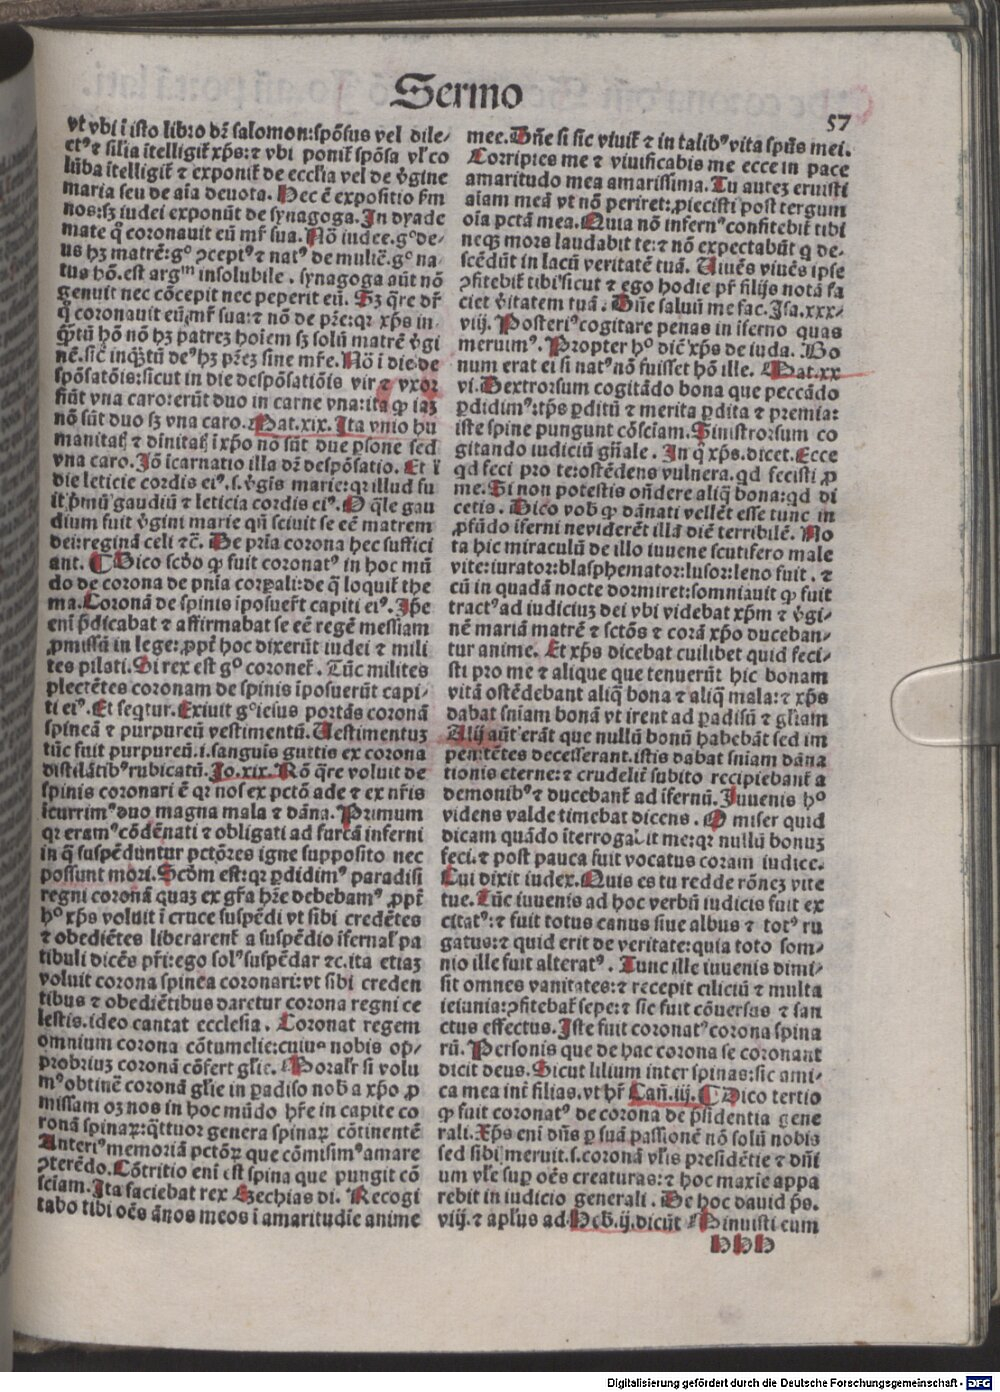 Sermo
57
vt vbi ī isto libro dr̄ salomon:spōsus vel dile⸗
ctꝰ ⁊ filia ītelligit̄ xp̄s:⁊ vbi ponit̄ spōsa vl̓ co
lūba ītelligit̄ ⁊ exponit̄ de ecclīa vel de v̓gine
maria seu de aīa deuota. Hec ē expositio fm̄
nos:sꝫ iudei exponūt de synagoga. In dyade
mate q̄ coronauit eū mr̄ sua. Nō iudee.gͦ de⸗
us hꝫ matrē:gͦ ꝯceptꝰ ⁊ natꝰ de muliē.gͦ na⸗
tus hō. est argᵐ insolubile. synagoga aūt nō
genuit nec cōcepit nec peperit eū. Sꝫ q̄re dr̄
q̄ coronauit eū mr̄ sua:⁊ nō de pr̄e:qꝛ xp̄s in⸗
q̄ꝫtū hō nō hꝫ patrez hoīem sꝫ solū matrē v̓gi
nē.sic̄ inq̄ꝫtū deꝰ hꝫ pr̄ez sine mr̄e. Nō ī die de
spōsatōis:sicut in die despōsatiōis vir ⁊ vxor
fiūt vna caro:erūt duo in carne vna:ita ꝙ iaꝫ
nō sūt duo sꝫ vna caro. Mat.xix. Ita vnio hu
manitat̄ ⁊ dīnitat̄ ī xp̄o nō sūt due ꝑsone sed
vna caro. Iō īcarnatio illa dr̄ despōsatio. Et ī
die leticie cordis eiꝰ.s. v̓gīs marie:qꝛ illud fu
it p̄mū gaudiū ⁊ leticia cordis eiꝰ. O q̄le gau
dium fuit v̓gini marie qn̄ sciuit se eē matrem
dei:reginā celi ⁊c̄. De prīa corona hec suffici
ant. ¶ Dico scḋo ꝙ fuit coronatꝰ in hoc mū
do de corona de pnīa corꝑali:de q̄ loquit̄ the
ma. Coronā de spinis īposuer̄t capiti eiꝰ. Ip̄e
enī p̄dicabat ⁊ affirmabat se eē regē messiam
ꝓmissū in lege:ꝓpt̄ hoc dixerūt iudei ⁊ mili
tes pilati. Si rex est gͦ coronet̄. Tūc milites
plectētes coronam de spinis īposuerūt capi⸗
ti eiꝰ. Et seqtur. Exiuit gͦ iesus portās coronā
spineā ⁊ purpureū vestimentū. Vestimentuꝫ
tūc fuit purpureū.i. sanguis guttis ex corona
distilātibꝰ rubicatū. Io.xix. Rō q̄re voluit de
spinis coronari ē qꝛ nos ex pctō ade ⁊ ex nr̄is
īcurrimꝰ duo magna mala ⁊ dāna. Primum
qꝛ eramꝰ cōdēnati ⁊ obligati ad furcā inferni
in q̄ suspēduntur pctōres igne supposito nec
possunt mori. Scḋm est:qꝛ ꝑdidimꝰ paradisi
regni coronā quaꝫ ex gr̄a hr̄e debebamꝰ ꝓpt̄
hͦ xp̄s voluit ī cruce suspēdi vt sibi credētes
⁊ obediētes liberarent̄ a suspēdio īfernal̓ pa
tibuli dicēs pr̄i:ego solꝰ suspēdar ⁊c.ita etiaꝫ
voluit corona spinea coronari:vt sibi creden
tibus ⁊ obediētibus daretur corona regni ce
lestis.ideo cantat ecclesia. Coronat regem
omnium corona cōtumelie:cuius nobis op⸗
probriuꝫ coronā cōfert gl̓ie. Moralr̄ si volu
mꝰ obtinē coronā gl̓ie in ꝑadiso nob̓ a xp̄o ꝓ
missam oꝫ nos in hoc mūdo hr̄e in capite co
ronā spinaꝝ:q̄ttuor genera spinaꝝ cōtinentē
Anteriꝰ memoriā pctōꝝ que cōmisimꝰ amare
ꝯterēdo. Cōtritio enī est spina que pungit cō
sciam. Ita faciebat rex Ezechias di. Recogi
tabo tibi oēs ānos meos ī amaritudīe anime
mee. Dn̄e si sic viuit̄ ⁊ in talibꝰ vita spūs mei.
Corripies me ⁊ viuificabis me ecce in pace
amaritudo mea amarissima. Tu autez eruisti
aīam meā vt nō periret:ꝓiecisti post tergum
oīa pctā mea. Quia nō infernꝰ confitebit̄ tibi
neqꝫ mors laudabit te:⁊ nō expectabūt q̄ de⸗
scēdūt in lacū veritatē tuā. Viuēs viuēs ipse
ꝯfitebit̄ tibi sicut ⁊ ego hodie pr̄ filijs notā fa
ciet v̓itatem tuā. Dn̄e saluū me fac. Isa.xxx⸗
viij. Posteriꝰ cogitare penas in iferno quas
meruimꝰ. Propter hͦ dic̄ xp̄s de iuda. Bo
num erat ei si natꝰ nō fuisset hō ille. Mat.xx
vi. Dextrorsum cogitādo bona que peccādo
ꝑdidimꝰ:tꝑs ꝑditū ⁊ merita ꝑdita ⁊ premia:
iste spine pungunt cōsciam. Sinistrorsum co
gitando iudiciū gn̄ale. In q̄ xp̄s. dicet. Ecce
qd feci pro te:ostēdens vulnera. qd fecisti ꝓ
me. Si non potestis oñdere aliq̄ bona:qd di
cetis. Dico vob̓ ꝙ dānati vellēt esse tunc in
ꝓfūdo iferni ne viderēt illā diē terribilē. No
ta hic miraculū de illo iuuene scutifero male
vite:iurator:blasphemator:lusor:leno fuit. ⁊
cū in quadā nocte dormiret:somniauit ꝙ fuit
tractꝰ ad iudiciuꝫ dei vbi videbat xp̄m ⁊ v̓gi⸗
nē mariā matrē ⁊ sctōs ⁊ corā xp̄o duceban⸗
tur anime. Et xp̄s dicebat cuilibet quid feci⸗
sti pro me ⁊ alique que tenuerūt hic bonam
vitā ostēdebant aliq̄ bona ⁊ aliq̄ mala:⁊ xp̄s
dabat sn̄iam bonā vt irent ad ꝑadisū ⁊ gl̓iam
Alij aūt erāt que nullū bonū habebāt sed im
penitētes decesserant.istis dabat sn̄iam dāna
tionis eterne:⁊ crudelit̄ subito recipiebant̄ a
demonibꝰ ⁊ ducebant̄ ad ifernū. Iuuenis hͦ
videns valde timebat dicens. O miser quid
dicam quādo īterrogabit me:qꝛ nullū bonuꝫ
feci.⁊ post pauca fuit vocatus coram iudice.
Cui dixit iudex. Quis es tu redde rōneꝫ vite
tue. Tūc iuuenis ad hoc verbū iudicis fuit ex
citatꝰ:⁊ fuit totus canus siue albus ⁊ totꝰ ru
gatus:⁊ quid erit de veritate:quia toto som⸗
nio ille fuit alteratꝰ. Tunc ille iuuenis dimi⸗
sit omnes vanitates:⁊ recepit ciliciū ⁊ multa
ieiunia:ꝯfitebat̄ sepe:⁊ sic fuit cōuersus ⁊ san
ctus effectus. Iste fuit coronatꝰ corona spina
rū. Personis que de hac corona se coronant
dicit deus. Sicut lilium inter spinas:sic ami⸗
ca mea int̄ filias.vt hr̄ Cañ.iij. ¶ Dico tertio
ꝙ fuit coronatꝰ de corona de p̄sidentia gene
rali. Xp̄s enī dn̄s ꝑ suā passionē nō solū nobis
sed sibi meruit.s. coronā vl̓is presidētie ⁊ dn̄i
um vl̓e suꝑ oēs creaturas:⁊ hoc maxīe appa
rebit in iudicio generali. De hoc dauid ps̄.
viij. ⁊ apl̓us ad Heb̓.ij. dicūt Minuisti eum
hhh
Digitalisierung gefördert durch die Deutsche Forschungsgemeinschaft - DFG